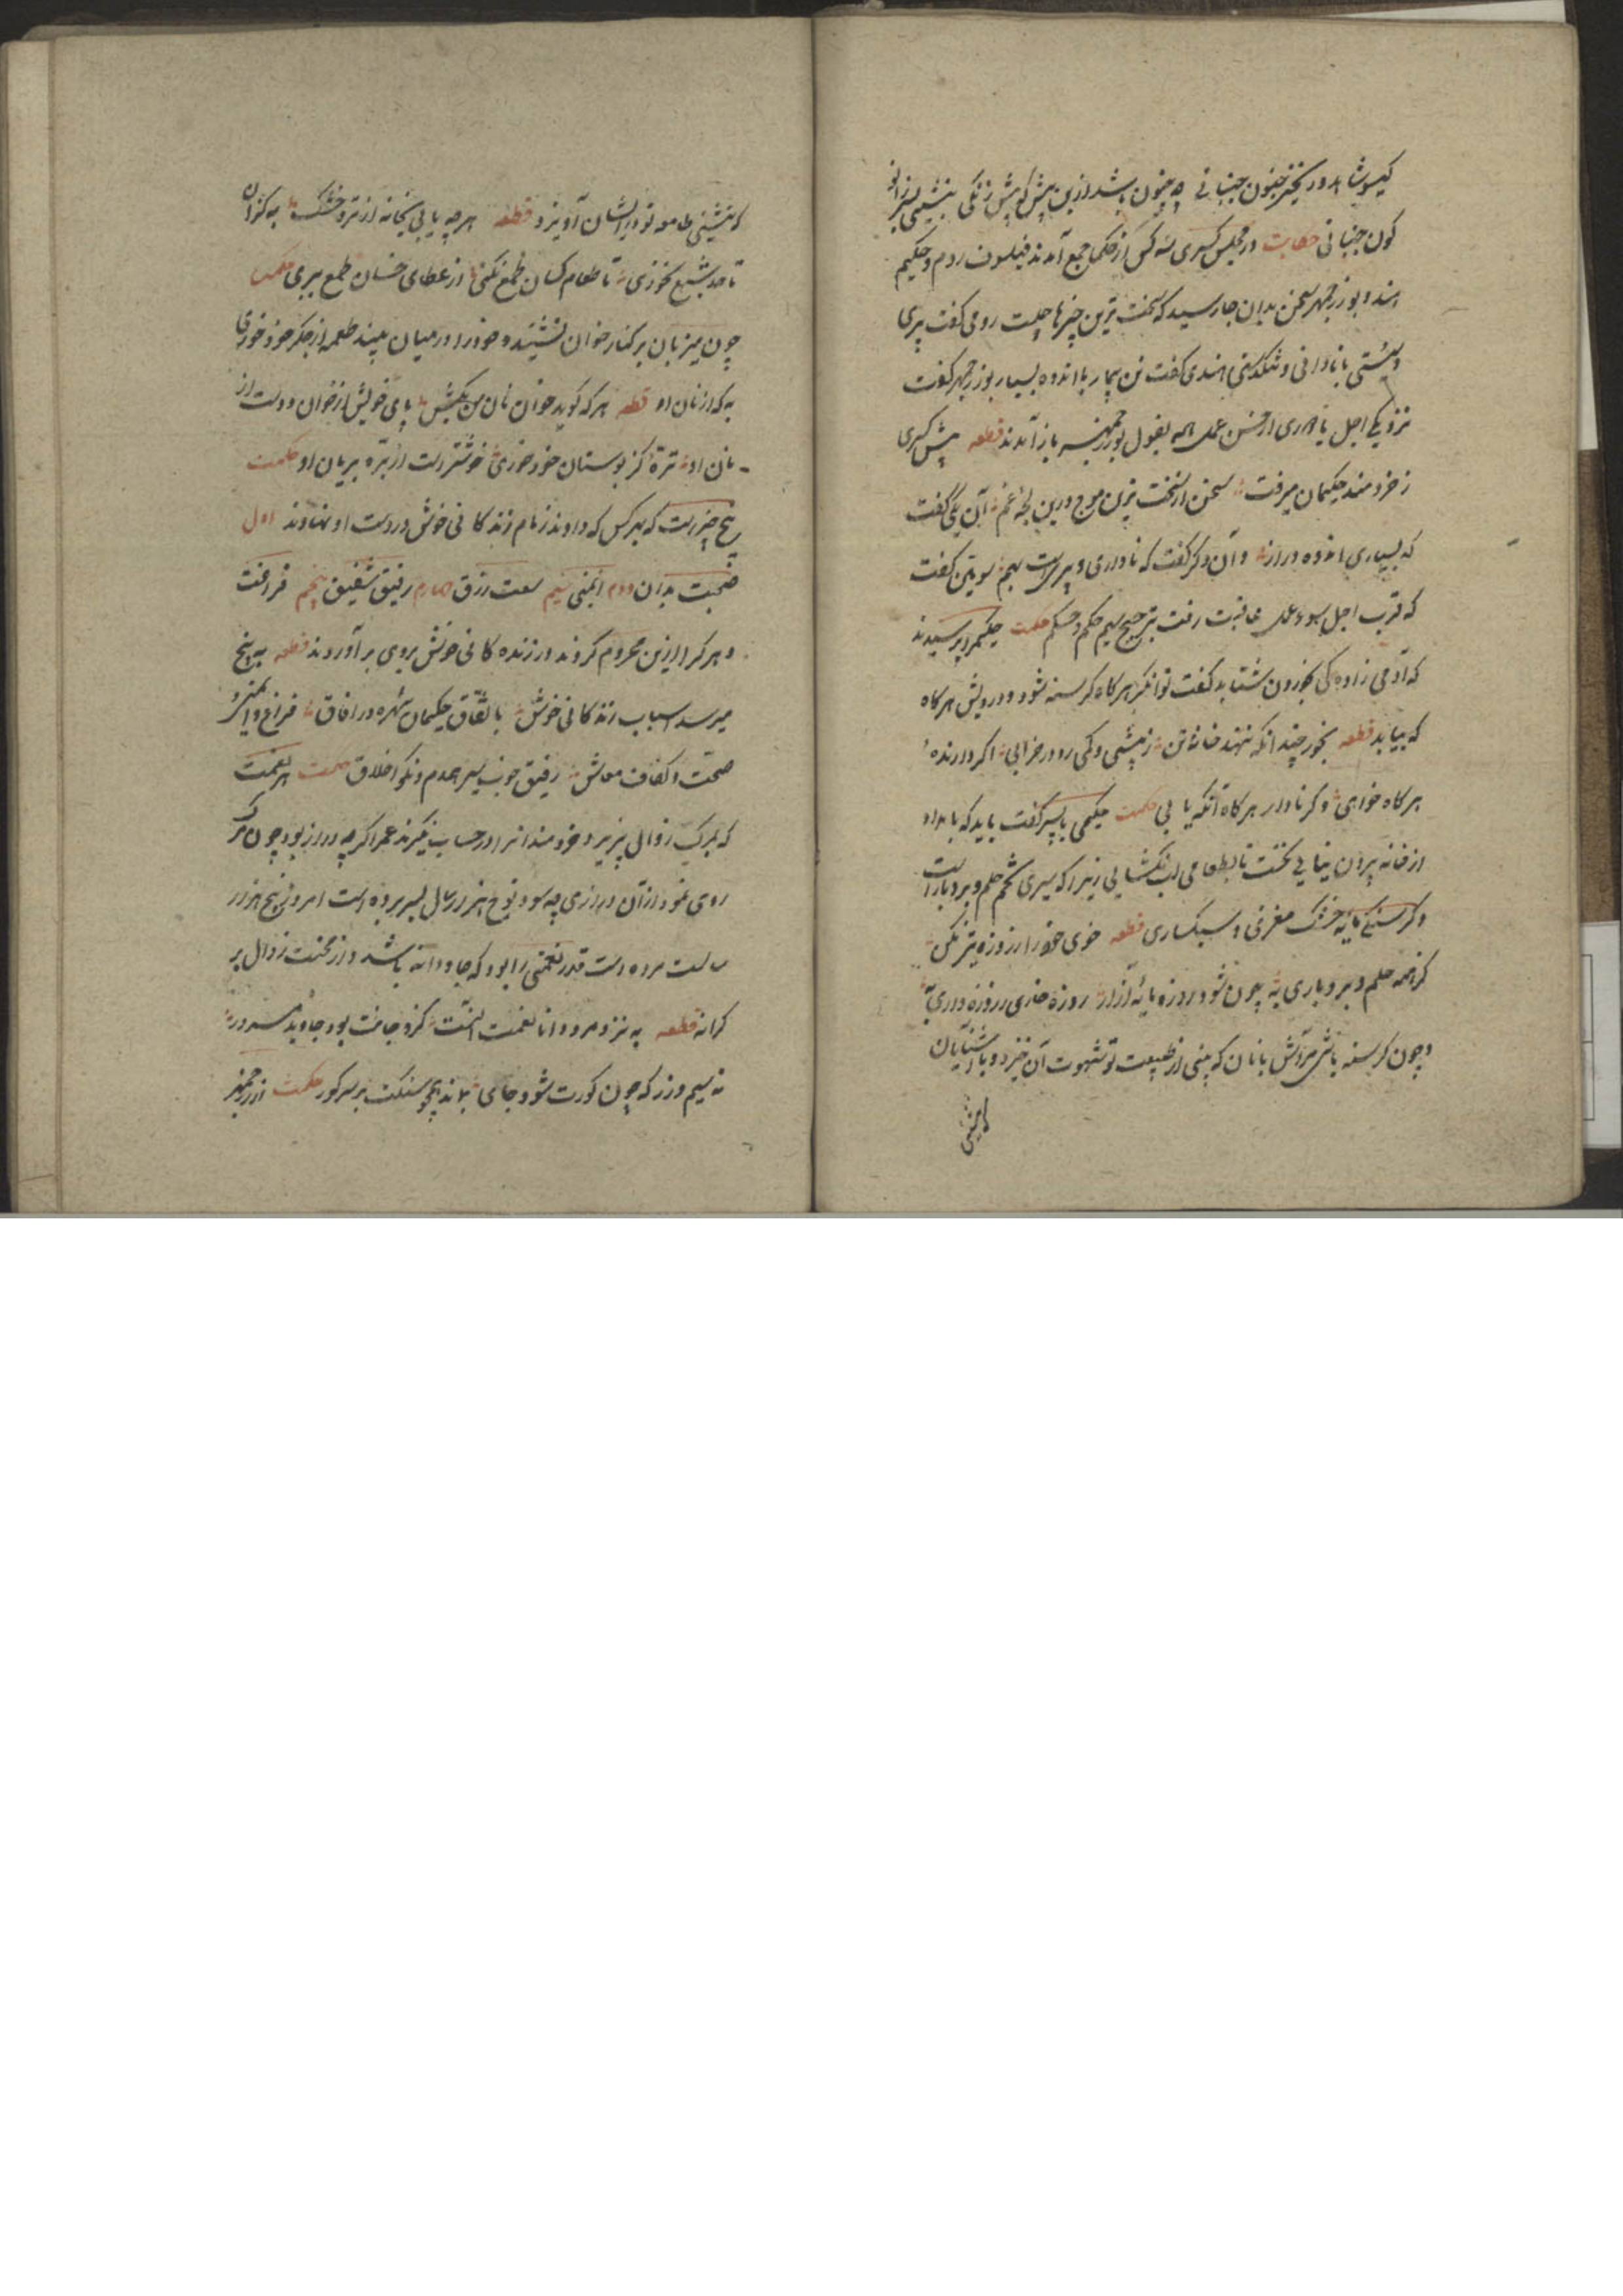 گیسوی شاهد و زنجیر جنون جنبانی چه جنون باشد ازین بیش که پیش زنگی بنشینی بسر زانو
کون جنبانی حکایت در مجلس کسری سه کس از حکما جمع آمدند فیلسوف روم و حکیم
هند و بوزرجمهر سخن بدان جا رسید که سخت ترین چیزها چیست رومی گفت پیری
و سستی با ناداری و تنگدستی هندی گفت تن بیمار با اندوه بسیار بوزرجمهر گفت
نزدیکی اجل با دوری از حسن عمل همه بقول بوزرجمهر باز آمدند قطعه پیش کسری
ز خردمند حکیمان میرفت سخن از سخت ترین موج درین لجه غم آن یکی گفت
که بیماری و اندوه دراز وان دگر گفت که ناداری و پیریست بهم سومین گفت
که قرب اجل و سوء عمل عاقبت رفت بترجیح سیم حکم حکم حکمت حکیمی را پرسیدند
که آدمی زاده کی بخوردن شتابد گفت توانگر هر گاه گرسنه شود و درویش هر گاه
که بیابد قطعه بخور چندانکه ننهد خانه تن ز بیشی و کمی رو در خرابی اگر دارنده
هر گاه خواهی وگر نادار هر گاه آنکه یابی حکمت حکیمی با پسر گفت باید که بامداد
از خانه بیرون نیایی نخست تا بطعامی لب نگشایی زیرا که سیری تخم حلم و بردباریست
و گرسنگی مایه خشک مغزی و سبکساری قطعه خوی خود را ز روزه تیز مکن
کز همه حلم و بردباری به چون شود روزه مایه آزار روزه خواری ز روزه داری به
و چون گرسنه باشی هر آش یا نان که بینی از طبیعت تو شهوت آن خیزد و با آشنایان
که نشینی طامعه تو در ایشان آویزد قطعه هر چه یابی بخانه از تر و خشک به کزان
تا حد شبع بخوری تا طعام کسان طمع نکنی از عطای خسان طمع ببری حکمت
چون میزبان بر کنار خوان نشیند و خود را در میان بیند طعمه از جگر خود خوری
به که از نان او قطعه هر که گوید خوان نان من بکش پای خویش از خوان و دست از
نان او تره کز بوستان خود خوری خوشترست از بره بریان او حکمت
پنج چیزست که بهر کس که دادند زمام زندگانی خوش در دست او نهادند اول
صحت بدن دوم ایمنی سیم سعت رزق چهارم رفیق شفیق پنجم فراغت
و هر کرا ازین محروم کردند در زندگانی خوش بروی بر آوردند قطعه به پنج
میرسد اسباب زندگانی خوش باتفاق حکیمان شهره در آفاق فراغ و ایمنی و
صحت و کفاف معاش رفیق خوب سیر همدم و نکو اخلاق حکمت هر نعمت
که بمرگ زوال پذیرد خردمند آنرا در حساب نگیرد عمر اگر چه دراز بود چون مرگ
روی نمود از آن درازی چه سود نوح هزار سال بسر برده است امروز پنج هزار
سالست مرده است قدر نعمتی را بود که جاودانه باشد و از محنت زوال بر
کرانه قطعه به نزد مرد دانا نعمت آنست کزو جانت بود جاوید مسرور
نه سیم و زر که چون گورت شود جای بماند همچو سنگت بر سر گور حکمت از بوزرجمهر